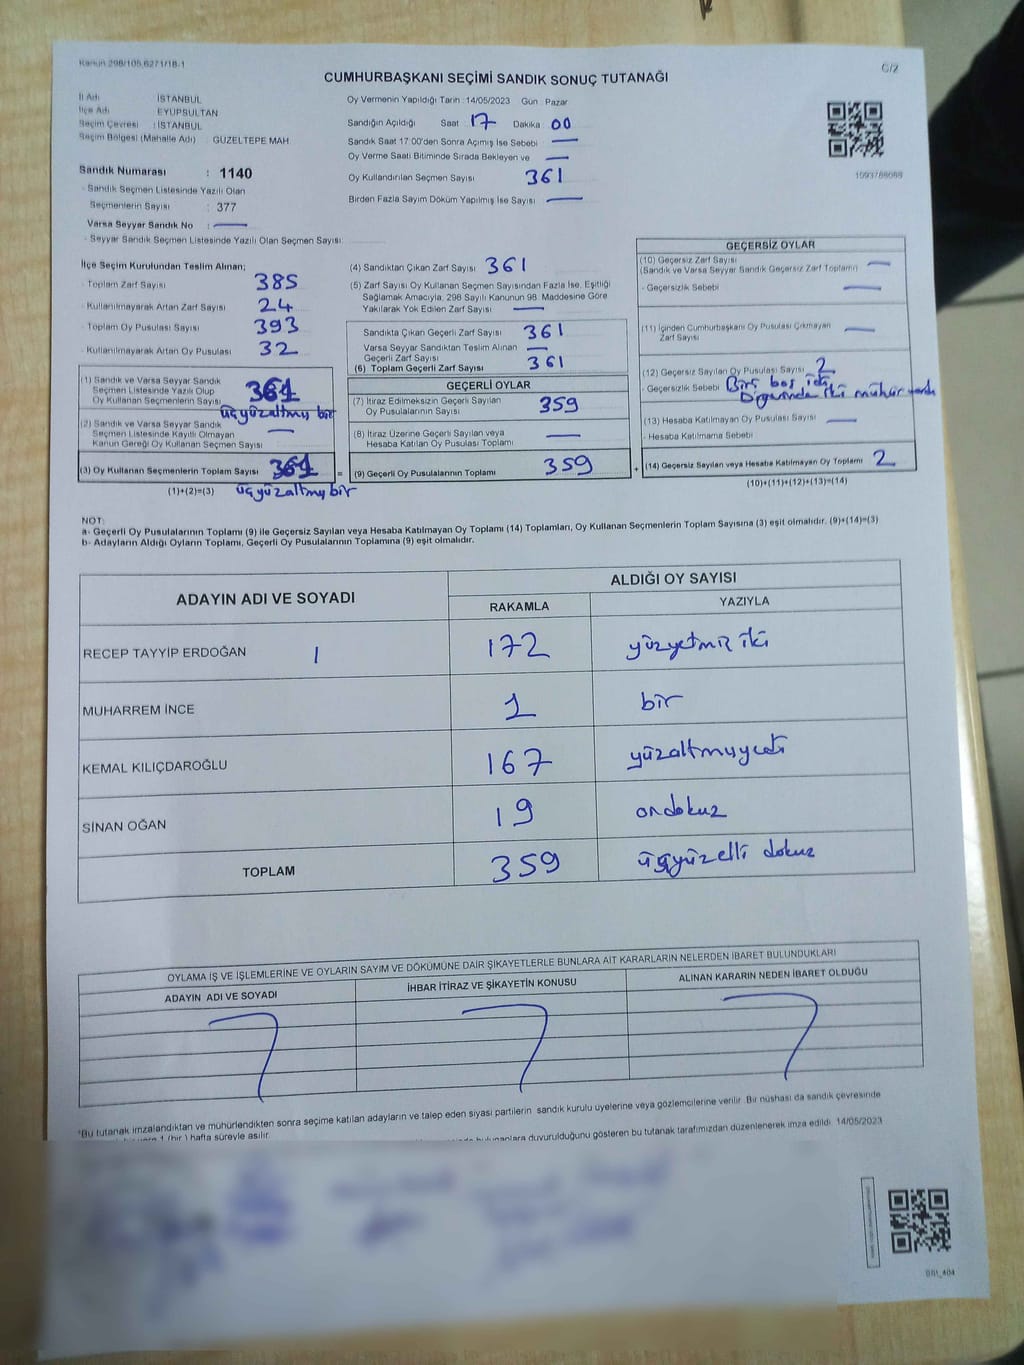 Kanun 298/105,6271/18-1
C/2
CUMHURBAŞKANI SEÇİMİ SANDIK SONUÇ TUTANAĞI
İl Adı İSTANBUL
İlçe Adı EYÜPSULTAN
Seçim Çevresi : İSTANBUL
Seçim Bölgesi (Mahalle Adı) GÜZELTEPE MAH.
Sandık Numarası : 1140
- Sandık Seçmen Listesinde Yazılı Olan
Seçmenlerin Sayısı : 377
Varsa Seyyar Sandık No : —
- Seyyar Sandık Seçmen Listesinde Yazılı Olan Seçmen Sayısı:
Oy Vermenin Yapıldığı Tarih :14/05/2023 Gün : Pazar
Sandığın Açıldığı Saat 17 Dakika 00
Sandık Saat 17:00'den Sonra Açımış İse Sebebi —
Oy Verme Saati Bitiminde Sırada Bekleyen ve —
Oy Kullandırılan Seçmen Sayısı 361
Birden Fazla Sayım Döküm Yapılmış İse Sayısı —
1093788088
İlçe Seçim Kurulundan Teslim Alınan;
- Toplam Zarf Sayısı 385
- Kullanılmayarak Artan Zarf Sayısı 24
- Toplam Oy Pusulası Sayısı 393
- Kullanılmayarak Artan Oy Pusulası 32
(1) Sandık ve Varsa Seyyar Sandık
Seçmen Listesinde Yazılı Olup
Oy Kullanan Seçmenlerin Sayısı 361
üçyüzaltmış bir
(2) Sandık ve Varsa Seyyar Sandık
Seçmen Listesinde Kayıtlı Olmayan —
Kanun Gereği Oy Kullanan Seçmen Sayısı
(3) Oy Kullanan Seçmenlerin Toplam Sayısı 361 =
(1)+(2)=(3) üçyüzaltmış bir
(4) Sandıktan Çıkan Zarf Sayısı 361
(5) Zarf Sayısı Oy Kullanan Seçmen Sayısından Fazla İse, Eşitliği
Sağlamak Amacıyla, 298 Sayılı Kanunun 98. Maddesine Göre
Yakılarak Yok Edilen Zarf Sayısı —
Sandıkta Çıkan Geçerli Zarf Sayısı 361
Varsa Seyyar Sandıktan Teslim Alınan —
Geçerli Zarf Sayısı
(6) Toplam Geçerli Zarf Sayısı 361
GEÇERLİ OYLAR
(7) İtiraz Edilmeksizin Geçerli Sayılan
Oy Pusulalarının Sayısı 359
(8) İtiraz Üzerine Geçerli Sayılan veya —
Hesaba Katılan Oy Pusulası Toplamı
(9) Geçerli Oy Pusulalarının Toplamı 359 +
GEÇERSİZ OYLAR
(10) Geçersiz Zarf Sayısı —
(Sandık ve Varsa Seyyar Sandık Geçersiz Zarf Toplamı)
- Geçersizlik Sebebi —
(11) İçinden Cumhurbaşkanı Oy Pusulası Çıkmayan —
Zarf Sayısı
(12) Geçersiz Sayılan Oy Pusulası Sayısı 2
- Geçersizlik Sebebi Biri boş idi
Diğerinde iki mühür vardı
(13) Hesaba Katılmayan Oy Pusulası Sayısı —
- Hesaba Katılmama Sebebi
(14) Geçersiz Sayılan veya Hesaba Katılmayan Oy Toplamı 2
(10)+(11)+(12)+(13)=(14)
NOT:
a- Geçerli Oy Pusulalarının Toplamı (9) ile Geçersiz Sayılan veya Hesaba Katılmayan Oy Toplamı (14) Toplamları, Oy Kullanan Seçmenlerin Toplam Sayısına (3) eşit olmalıdır. (9)+(14)=(3)
b- Adayların Aldığı Oyların Toplamı, Geçerli Oy Pusulalarının Toplamına (9) eşit olmalıdır.
ADAYIN ADI VE SOYADI
ALDIĞI OY SAYISI
RAKAMLA YAZIYLA
RECEP TAYYİP ERDOĞAN 1 172 yüzyetmiş iki
MUHARREM İNCE 1 bir
KEMAL KILIÇDAROĞLU 167 yüzaltmışyedi
SİNAN OĞAN 19 ondokuz
TOPLAM 359 üçyüzelli dokuz
OYLAMA İŞ VE İŞLEMLERİNE VE OYLARIN SAYIM VE DÖKÜMÜNE DAİR ŞİKAYETLERLE BUNLARA AİT KARARLARIN NELERDEN İBARET BULUNDUKLARI
ADAYIN ADI VE SOYADI İHBAR İTİRAZ VE ŞİKAYETİN KONUSU ALINAN KARARIN NEDEN İBARET OLDUĞU
*Bu tutanak imzalandıktan ve mühürlendikten sonra seçime katılan adayların ve talep eden siyasi partilerin sandık kurulu üyelerine veya gözlemcilerine verilir. Bir nüshası da sandık çevresinde
1 (bir) hafta süreyle asılır.
duyurulduğunu gösteren bu tutanak tarafımızdan düzenlenerek imza edildi. 14/05/2023